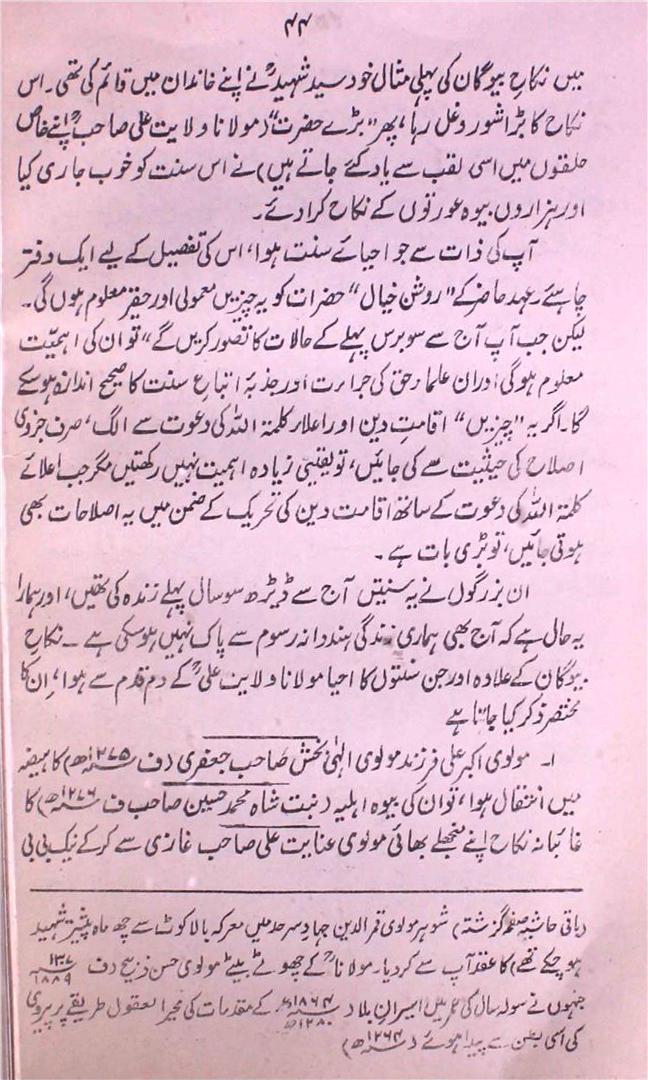 ۴۴
میں نکاحِ بیوگان کی پہلی مثال خود سید شہیدؒ نے اپنے خاندان میں قائم کی تھی۔ اس
نکاح کا بڑا شور و غل رہا، پھر "بڑے حضرت" (مولانا ولایت علی صاحبؒ اپنے خاص
حلقوں میں اسی لقب سے یاد کئے جاتے ہیں) نے اس سنت کو خوب جاری کیا
اور ہزاروں بیوہ عورتوں کے نکاح کرا دئے۔
آپ کی ذات سے جو احیائے سنت ہوا، اس کی تفصیل کے لیے ایک دفتر
چاہئے۔ عہد حاضر کے "روشن خیال" حضرات کو یہ چیزیں معمولی اور حقیر معلوم ہوں گی۔
لیکن جب آپ آج سے سو برس پہلے کے حالات کا تصور کریں گے" تو ان کی اہمیّت
معلوم ہوگی اور ان علماء حق کی جراءت اور جذبۂ اتباعِ سنت کا صحیح اندازہ ہو سکے
گا۔ اگر یہ "چیزیں" اقامتِ دین اور اعلاء کلمۃ اللہ کی دعوت سے الگ، صرف جزوی
اصلاح کی حیثیت سے کی جائیں، تو یقینی زیادہ اہمیت نہیں رکھتیں مگر جب اعلائے
کلمۃ اللہ کی دعوت کے ساتھ اقامت دین کی تحریک کے ضمن میں یہ اصلاحات بھی
ہوتی جائیں، تو بڑی بات ہے۔
ان بزرگوں نے یہ سنتیں آج سے ڈیڑھ سو سال پہلے زندہ کی تھیں، اور ہمارا
یہ حال ہے کہ آج بھی ہماری زندگی ہندوانہ رسوم سے پاک نہیں ہو سکی ہے۔ نکاحِ
بیوگان کے علاوہ اور جن سنتوں کا احیا مولانا ولایت علیؒ کے دم قدم سے ہوا، اِن کا
مختصر ذکر کیا جاتا ہے
۱۔ مولوی اکبر علی فرزند مولوی الٰہی بخش صاحب جعفری (ف ۱۲۷۵ھ) کا ہیضہ
میں انتقال ہوا، تو ان کی بیوہ اہلیہ (بنت شاہ محمد حسین صاحب ف ۱۲۷۶ھ) کا
غائبانہ نکاح اپنے منجھلے بھائی مولوی عنایت علی صاحب غازی سے کر کے نیک بی بی
(باقی حاشیہ صفحہ گزشتہ) شوہر مولوی قمر الدین جہاد سرحد میں معرکہ بالا کوٹ سے چھ ماہ پیشتر شہید
ہو چکے تھے) کا عقد آپ سے کر دیا۔ مولاناؒ کے چھوٹے بیٹے مولوی حسن ذبیح (ف ۱۳۰۷ھ ۱۸۸۹ء
جنہوں نے سولہ سال کی عمر میں اسیرانِ بلا (۱۸۶۴ء ۱۲۸۰ھ کے مقدمات کی محیر العقول طریقے پر پیروی
کی اسی بطن سے پیدا ہوئے (۱۲۶۴ھ)